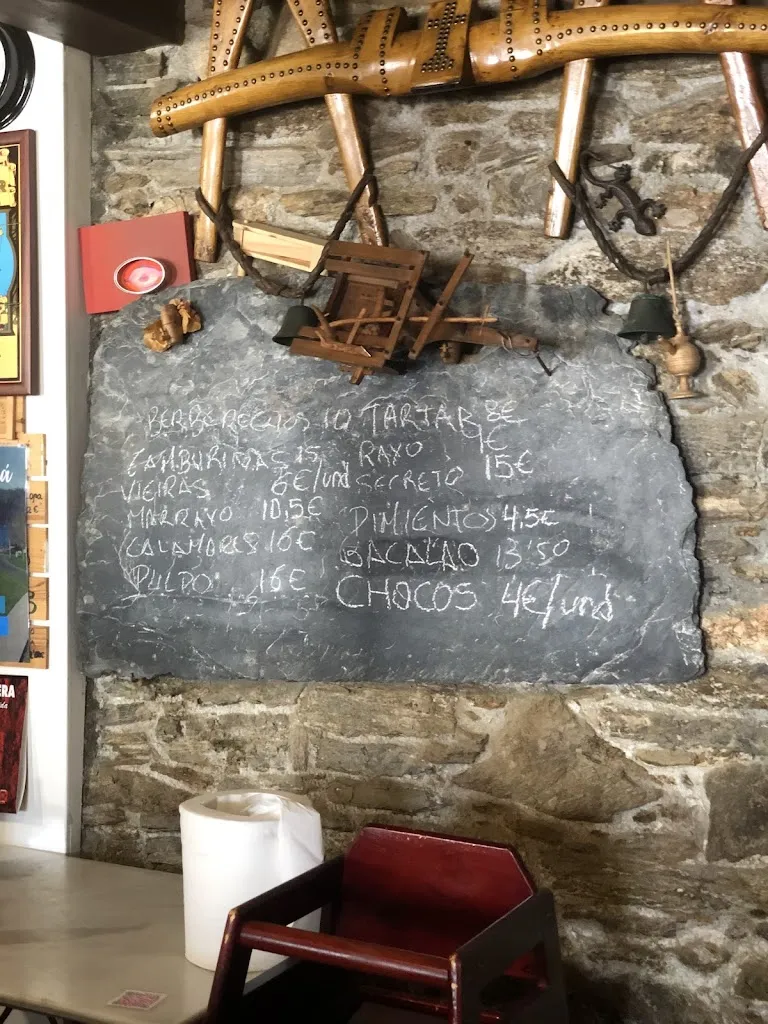 BERBERECHOS 10
ZAMBURIÑAS 15
VIEIRAS 6€/und
MARRAXO 10,5€
CALAMARES 16€
PULPO 16€
TARTAR 8€
RAXO 9€
SECRETO 15€
PIMIENTOS 4,5€
BACALAO 13'50
CHOCOS 4€/und